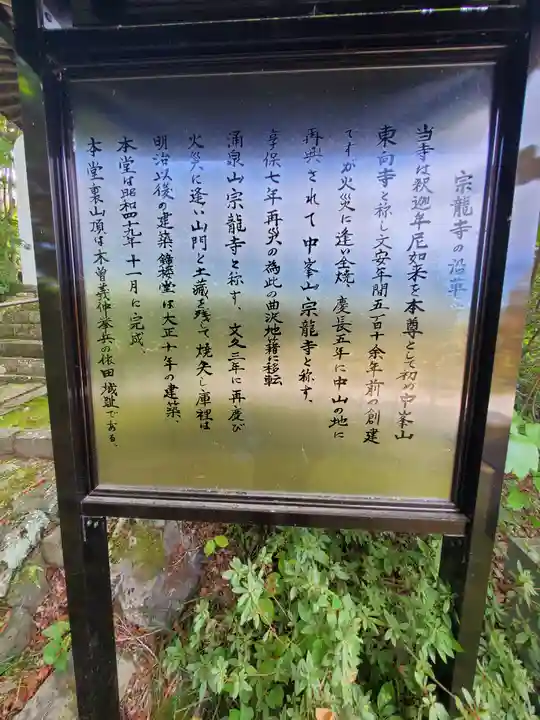 宗龍寺の沿革
当寺は釈迦牟尼如来を本尊として初め中峯山
東向寺と称し文安年間五百十余年前の創建
ですが火災に逢い全焼 慶長五年に中山の地に
再興されて中峯山宗龍寺と称す。
享保七年再災の為此の曲沢地籍に移転
涌泉山宗龍寺と称す。文久三年に再度び
火災に逢い山門と土蔵を残して焼失し庫裡は
明治以後の建築、鐘楼堂は大正十年の建築、
本堂は昭和四十九年十一月に完成
本堂裏山頂は木曽義仲挙兵の依田城趾である。